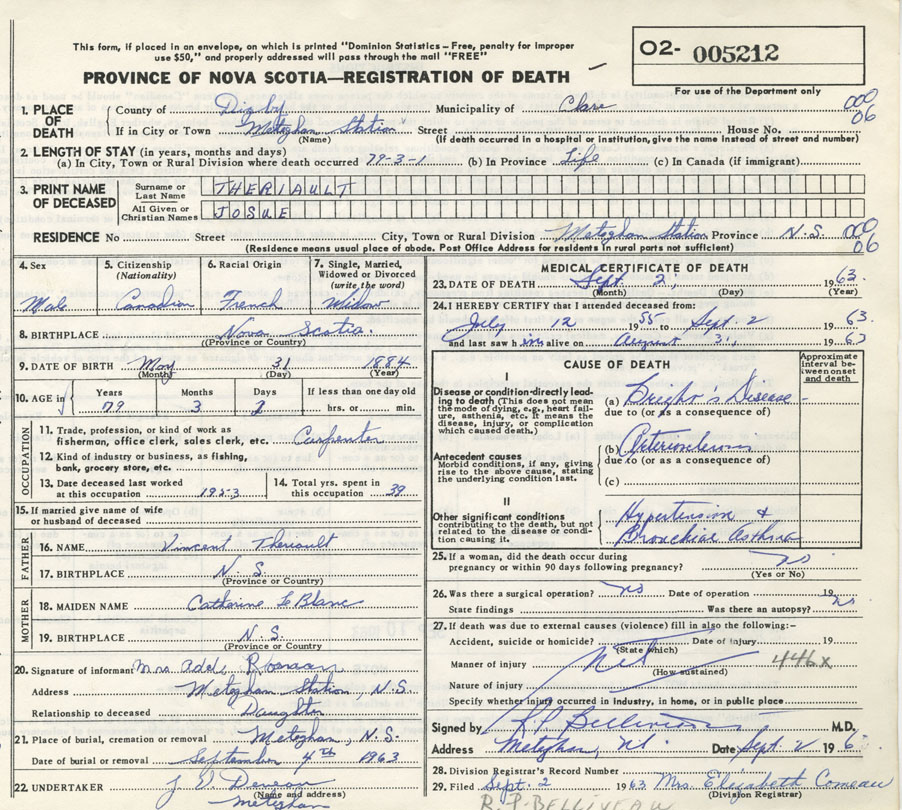 This form, if placed in an envelope, on which is printed "Dominion Statistics – Free, penalty for improper
use $50," and properly addressed will pass through the mail "FREE"
O2- 005212
PROVINCE OF NOVA SCOTIA—REGISTRATION OF DEATH
For use of the Department only
1. PLACE OF DEATH
County of Digby Municipality of Clare 000 06
If in City or Town Meteghan Station Street House No.
(Name) (If death occurred in a hospital or institution, give the name instead of street and number)
2. LENGTH OF STAY (in years, months and days)
(a) In City, Town or Rural Division where death occurred 79-3-1 (b) In Province Life (c) In Canada (if immigrant)
3. PRINT NAME OF DECEASED
Surname or Last Name THERIAULT
All Given or Christian Names JOSUE
RESIDENCE No Street City, Town or Rural Division Meteghan Station Province N.S. 000 06
(Residence means usual place of abode. Post Office Address for residents in rural parts not sufficient)
4. Sex Male
5. Citizenship (Nationality) Canadian
6. Racial Origin French
7. Single, Married, Widowed or Divorced (write the word) Widow
8. BIRTHPLACE Nova Scotia.
(Province or Country)
9. DATE OF BIRTH May 31 1884
(Month) (Day) (Year)
10. AGE in Years 79 Months 3 Days 2 If less than one day old hrs. or min.
OCCUPATION
11. Trade, profession, or kind of work as
fisherman, office clerk, sales clerk, etc. Carpenter
12. Kind of industry or business, as fishing,
bank, grocery store, etc.
13. Date deceased last worked
at this occupation 1953
14. Total yrs. spent in
this occupation 39
15. If married give name of wife
or husband of deceased
FATHER
16. NAME Vincent Theriault
17. BIRTHPLACE N.S.
(Province or Country)
MOTHER
18. MAIDEN NAME Catherine LeBlanc
19. BIRTHPLACE N.S.
(Province or Country)
20. Signature of informant Mrs Adele
Address Meteghan Station, N.S.
Relationship to deceased Daughter
21. Place of burial, cremation or removal Meteghan, N.S.
Date of burial or removal September 4th 1963
22. UNDERTAKER J. D.
(Name and address)
Meteghan
MEDICAL CERTIFICATE OF DEATH
23. DATE OF DEATH Sept. 2, 1963.
(Month) (Day) (Year)
24. I HEREBY CERTIFY that I attended deceased from:
July 12 1955 to Sept. 2 1963.
and last saw him alive on August 31, 1963
CAUSE OF DEATH
Approximate interval between onset and death
I
Disease or condition directly leading to death (This does not mean the mode of dying, e.g., heart failure, asthenia, etc. It means the disease, injury, or complication which caused death.)
(a) Bright's Disease
due to (or as a consequence of)
Antecedent causes
Morbid conditions, if any, giving rise to the above cause, stating the underlying condition last.
(b)
due to (or as a consequence of)
(c)
II
Other significant conditions contributing to the death, but not related to the disease or condition causing it.
Hypertension &
Bronchial Asthma
25. If a woman, did the death occur during
pregnancy or within 90 days following pregnancy? no
(Yes or No)
26. Was there a surgical operation? no Date of operation 19
State findings Was there an autopsy? no
27. If death was due to external causes (violence) fill in also the following:–
Accident, suicide or homicide? Date of injury 19
(State which)
Manner of injury Nil 446x
(How sustained)
Nature of injury
Specify whether injury occurred in industry, in home, or in public place
Signed by M.D.
Address Meteghan, Date Sept. 2 196
28. Division Registrar's Record Number
29. Filed Sept. 2 1963 Mrs. Elizabeth Comeau
(Division Registrar)
R.P. BELLIVEAU